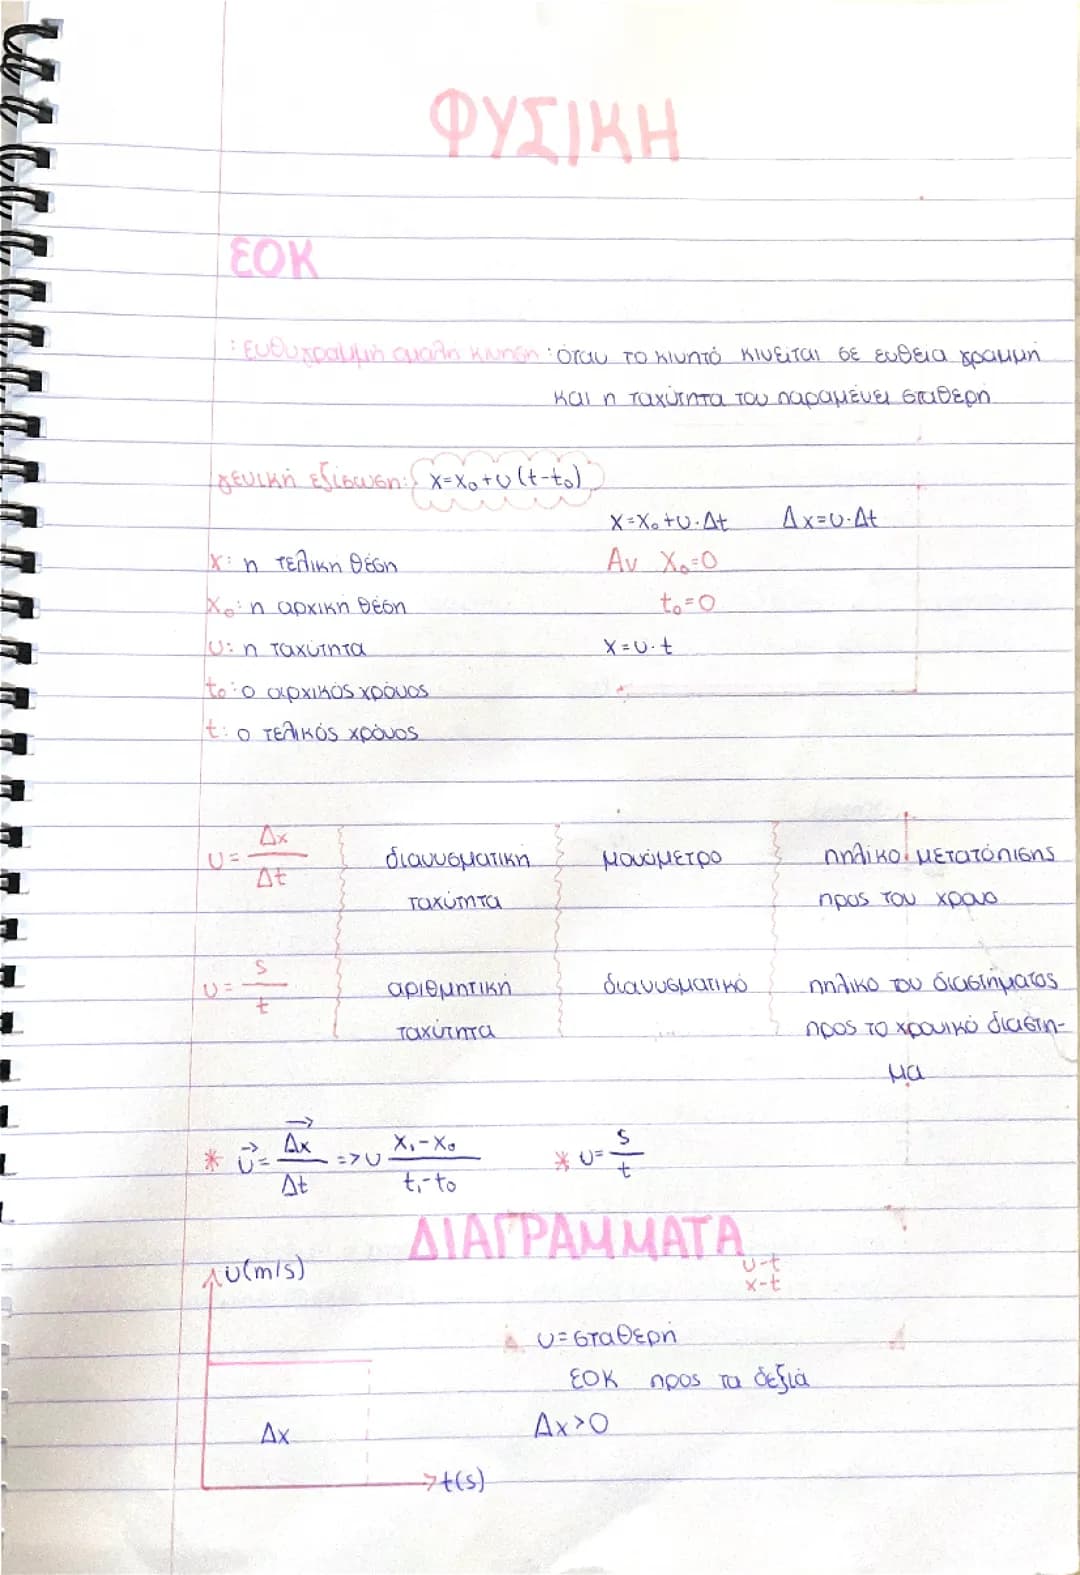 ΦΥΣΙΚΗ
ΕΟΚ
: Ευθυγραμμη ομαλη κινηση : όταν το κινητό κινείται σε ευθεια γραμμή
και η ταχύτητα του παραμένει σταθερή
γενική εξίσωση: x=x₀+υ(t-t₀)
x=x₀+υ·Δt Δx=υ·Δt
x: η τελική θέση
Αν x₀=0
x₀: η αρχική θέση
t₀=0
υ: η ταχύτητα
x=υ·t
t₀: ο αρχικός χρόνος
t: ο τελικός χρόνος
υ= Δx/Δt διανυσματική μονόμετρο πηλίκο μετατόπισης
ταχύτητα προς τον χρονο
υ= s/t αριθμητική διανυσματικό πηλίκο του διαστήματος
ταχύτητα προς το χρονικό διάστη-
μα
* υ⃗= Δx⃗/Δt => υ x₁-x₀/t₁-t₀ * υ= s/t
ΔΙΑΓΡΑΜΜΑΤΑ
υ-t
x-t
υ(m/s)
υ=σταθερή
ΕΟΚ προς τα δεξιά
Δx
Δx>0
t(s)